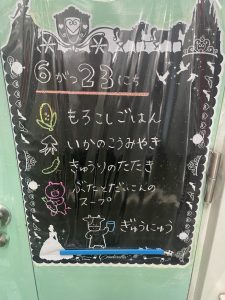 6がつ23にち
もろこしごはん
いかのこうみやき
きゅうりのたたき
ぶたとだいこんの
スープ
ぎゅうにゅう
Cinderella